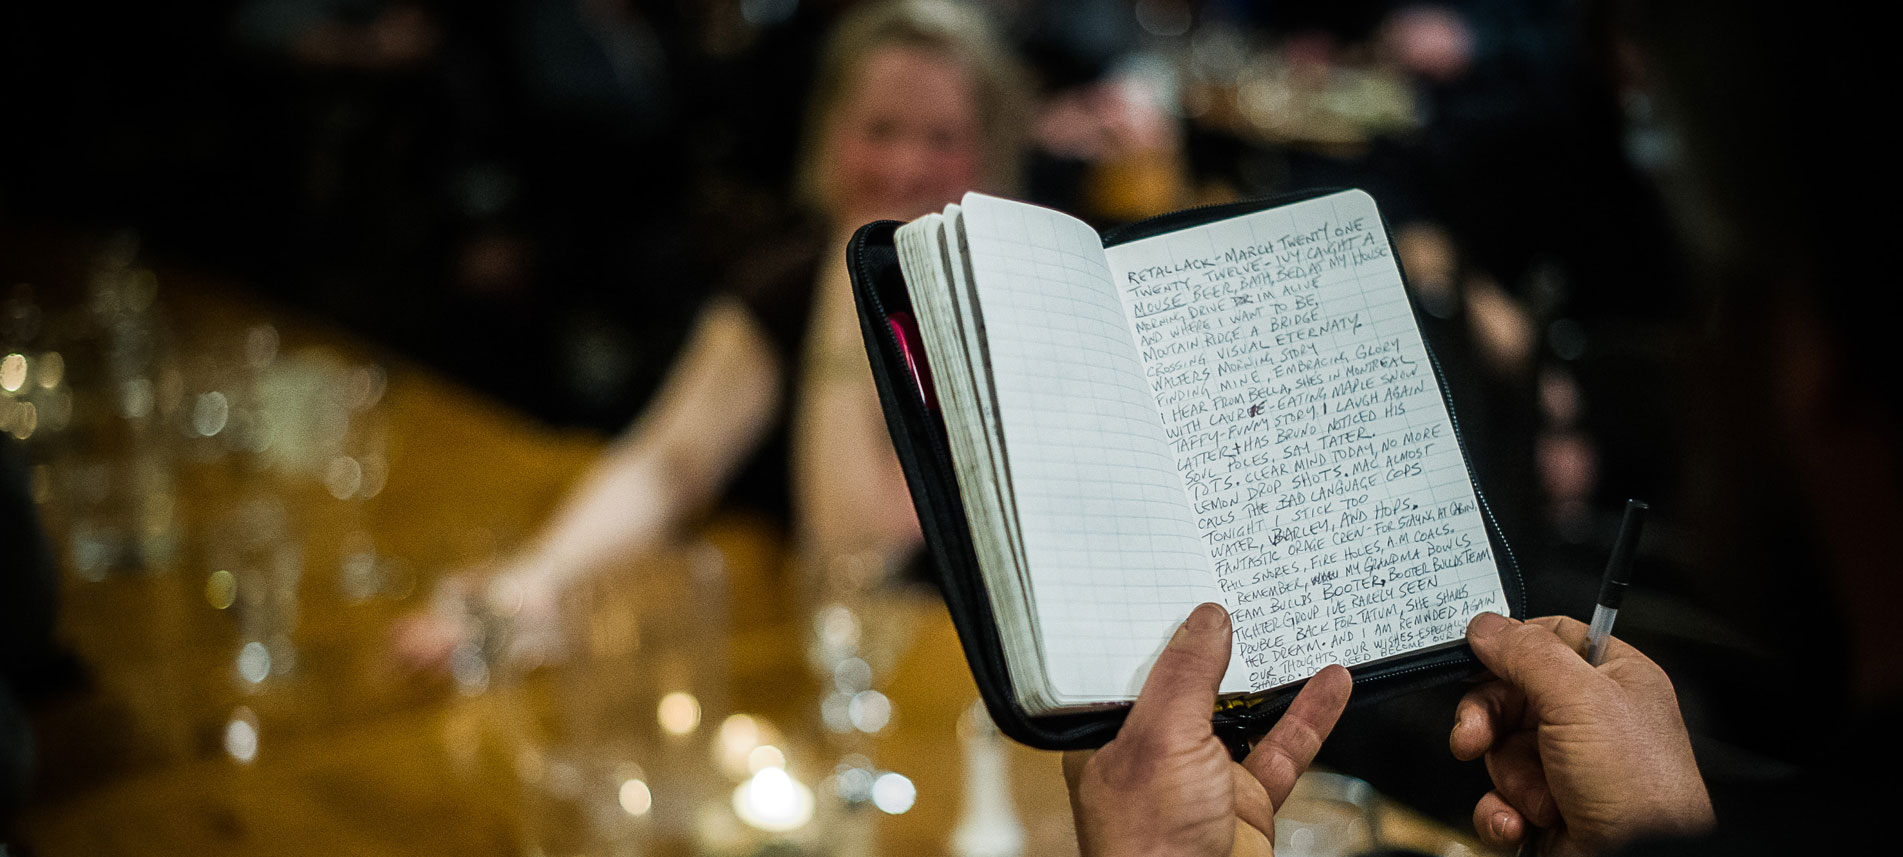 RETALLACK - MARCH TWENTY ONE
TWENTY TWELVE - IVY CAUGHT A
MOUSE BEER, BATH, BED, AT MY HOUSE
MORNING DRIVE IM ALIVE
AND WHERE I WANT TO BE,
MOUTAIN RIDGE A BRIDGE
CROSSING VISUAL ETERNATY.
WALTERS MORNING STORY
FINDING MINE, EMBRACING GLORY
I HEAR FROM BELLA, SHE'S IN MONTREAL
WITH - EATING MAPLE SNOW
TAFFY - FUNNY STORY. I LAUGH AGAIN
LATTER + HAS BRUNO NOTICED HIS
SOUL POLES, SAY TATER.
TOTS. CLEAR MIND TODAY, NO MORE
LEMON DROP SHOTS. MAC ALMOST
CALLS THE BAD LANGUAGE COPS
TONIGHT I STICK TOO
WATER, BARLEY, AND HOPS.
FANTASTIC ORAGE CREW - FOR STAYING AT CABIN,
PHIL SNORES, FIRE HOLES, A.M COALS.
I REMEMBER, MY GRANDMA BOWLS
TEAM BUILDS BOOTER, BOOTER BUILDS TEAM
TIGHTER GROUP IVE RARELY SEEN
DOUBLE BACK FOR TATUM, SHE SHARES
HER DREAM. AND I AM REMINDED AGAIN
OUR THOUGHTS OUR WISHES - ESPECIALLY
SHARED. DO INDEED BECOME OUR